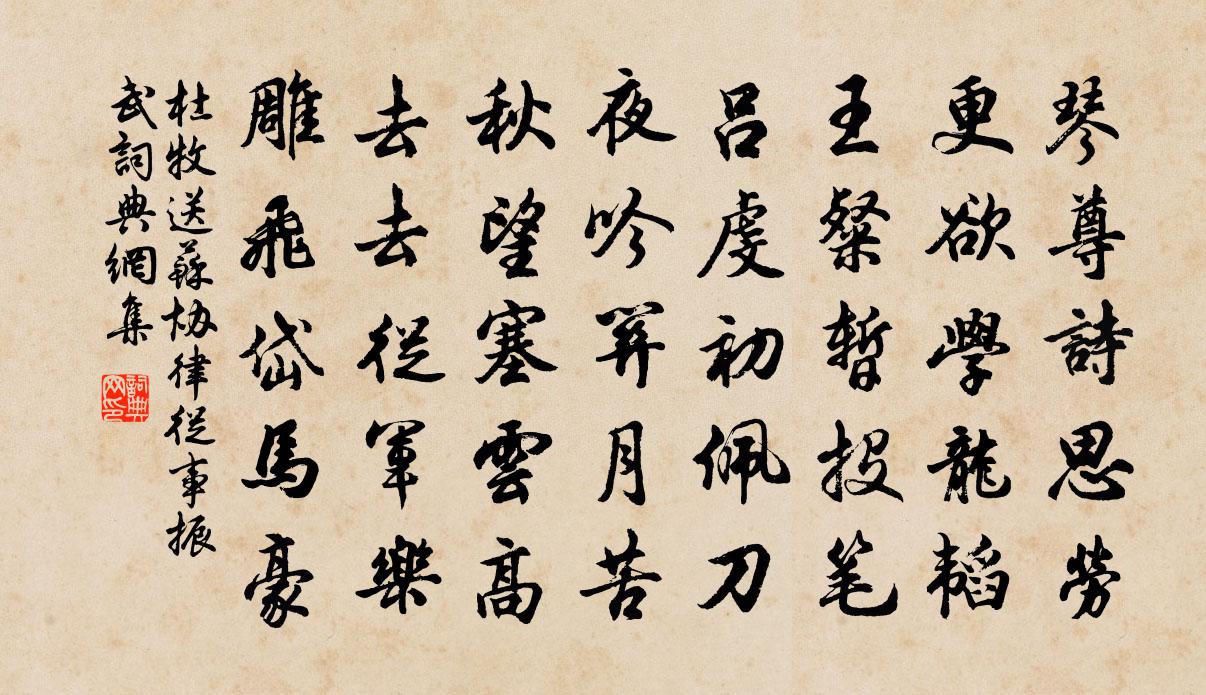 琴尊詩思勞
更欲學龍韜
王粲暫投笔
呂虔初佩刀
夜吟關月苦
秋望塞雲高
去去從軍樂
雕飛岱馬豪
杜牧送蘇協律從事振
武詞典網集
詞典网印